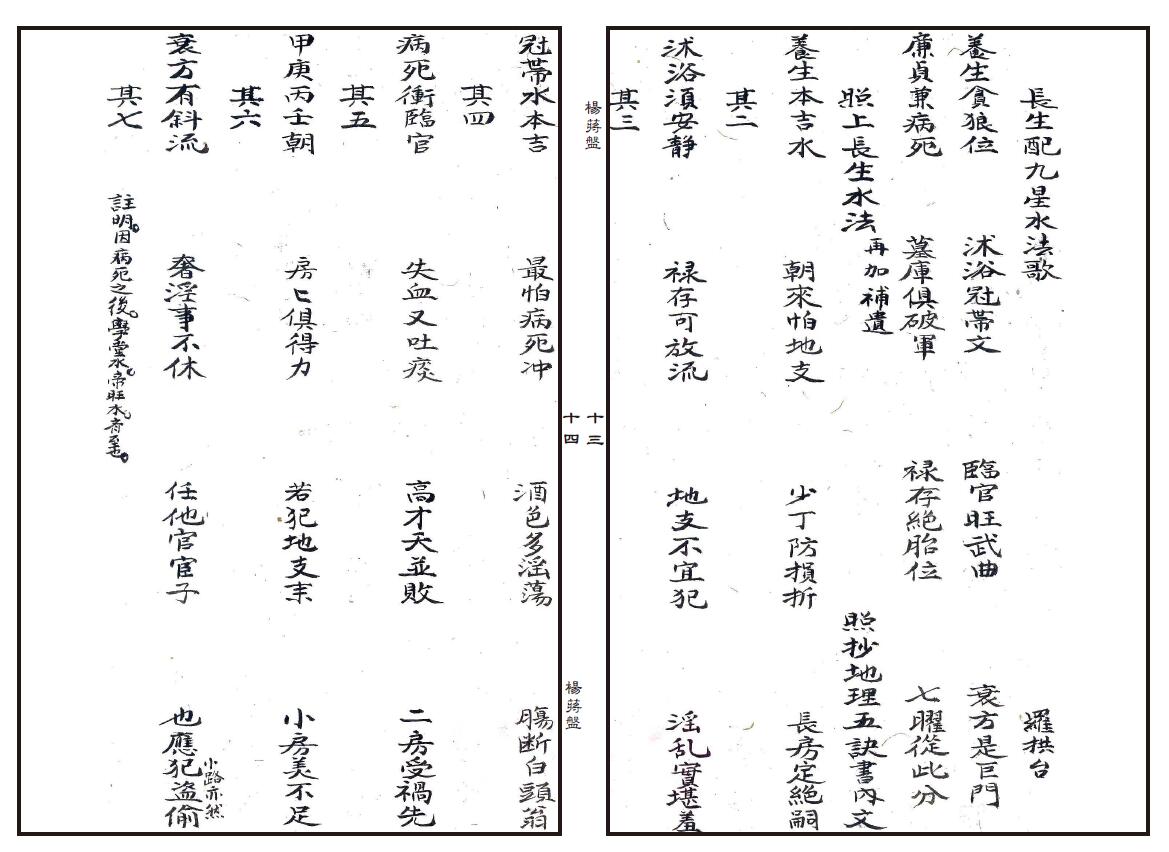 長生配九星水法歌 羅拱台
養生貪狼位 沭浴冠帶文 臨官旺武曲 衰方是巨門
廉貞兼病死 墓庫俱破軍 祿存絕胎位 七曜從此分
照上長生水法 再加補遺 照抄地理五訣書內文
養生本吉水 朝來怕地支 少丁防損折 長房定絕嗣
其二
沭浴須安靜 祿存可放流 地支不宜犯 淫乱實堪羞
其三
楊蔣盤
十三
十四
楊蔣盤
冠帶水本吉 最怕病死冲 酒色多淫蕩 腸断白頭翁
其四
病死衝臨官 失血又吐痰 高才夭並敗 二房受禍先
其五
甲庚丙壬朝 房匕俱得力 若犯地支来 小房美不足
其六
衰方有斜流 奢淫事不休 任他官宦子 也應犯盜偷
小路亦然
其七
註明。因病死之後。學堂水。帝旺水齊至也。